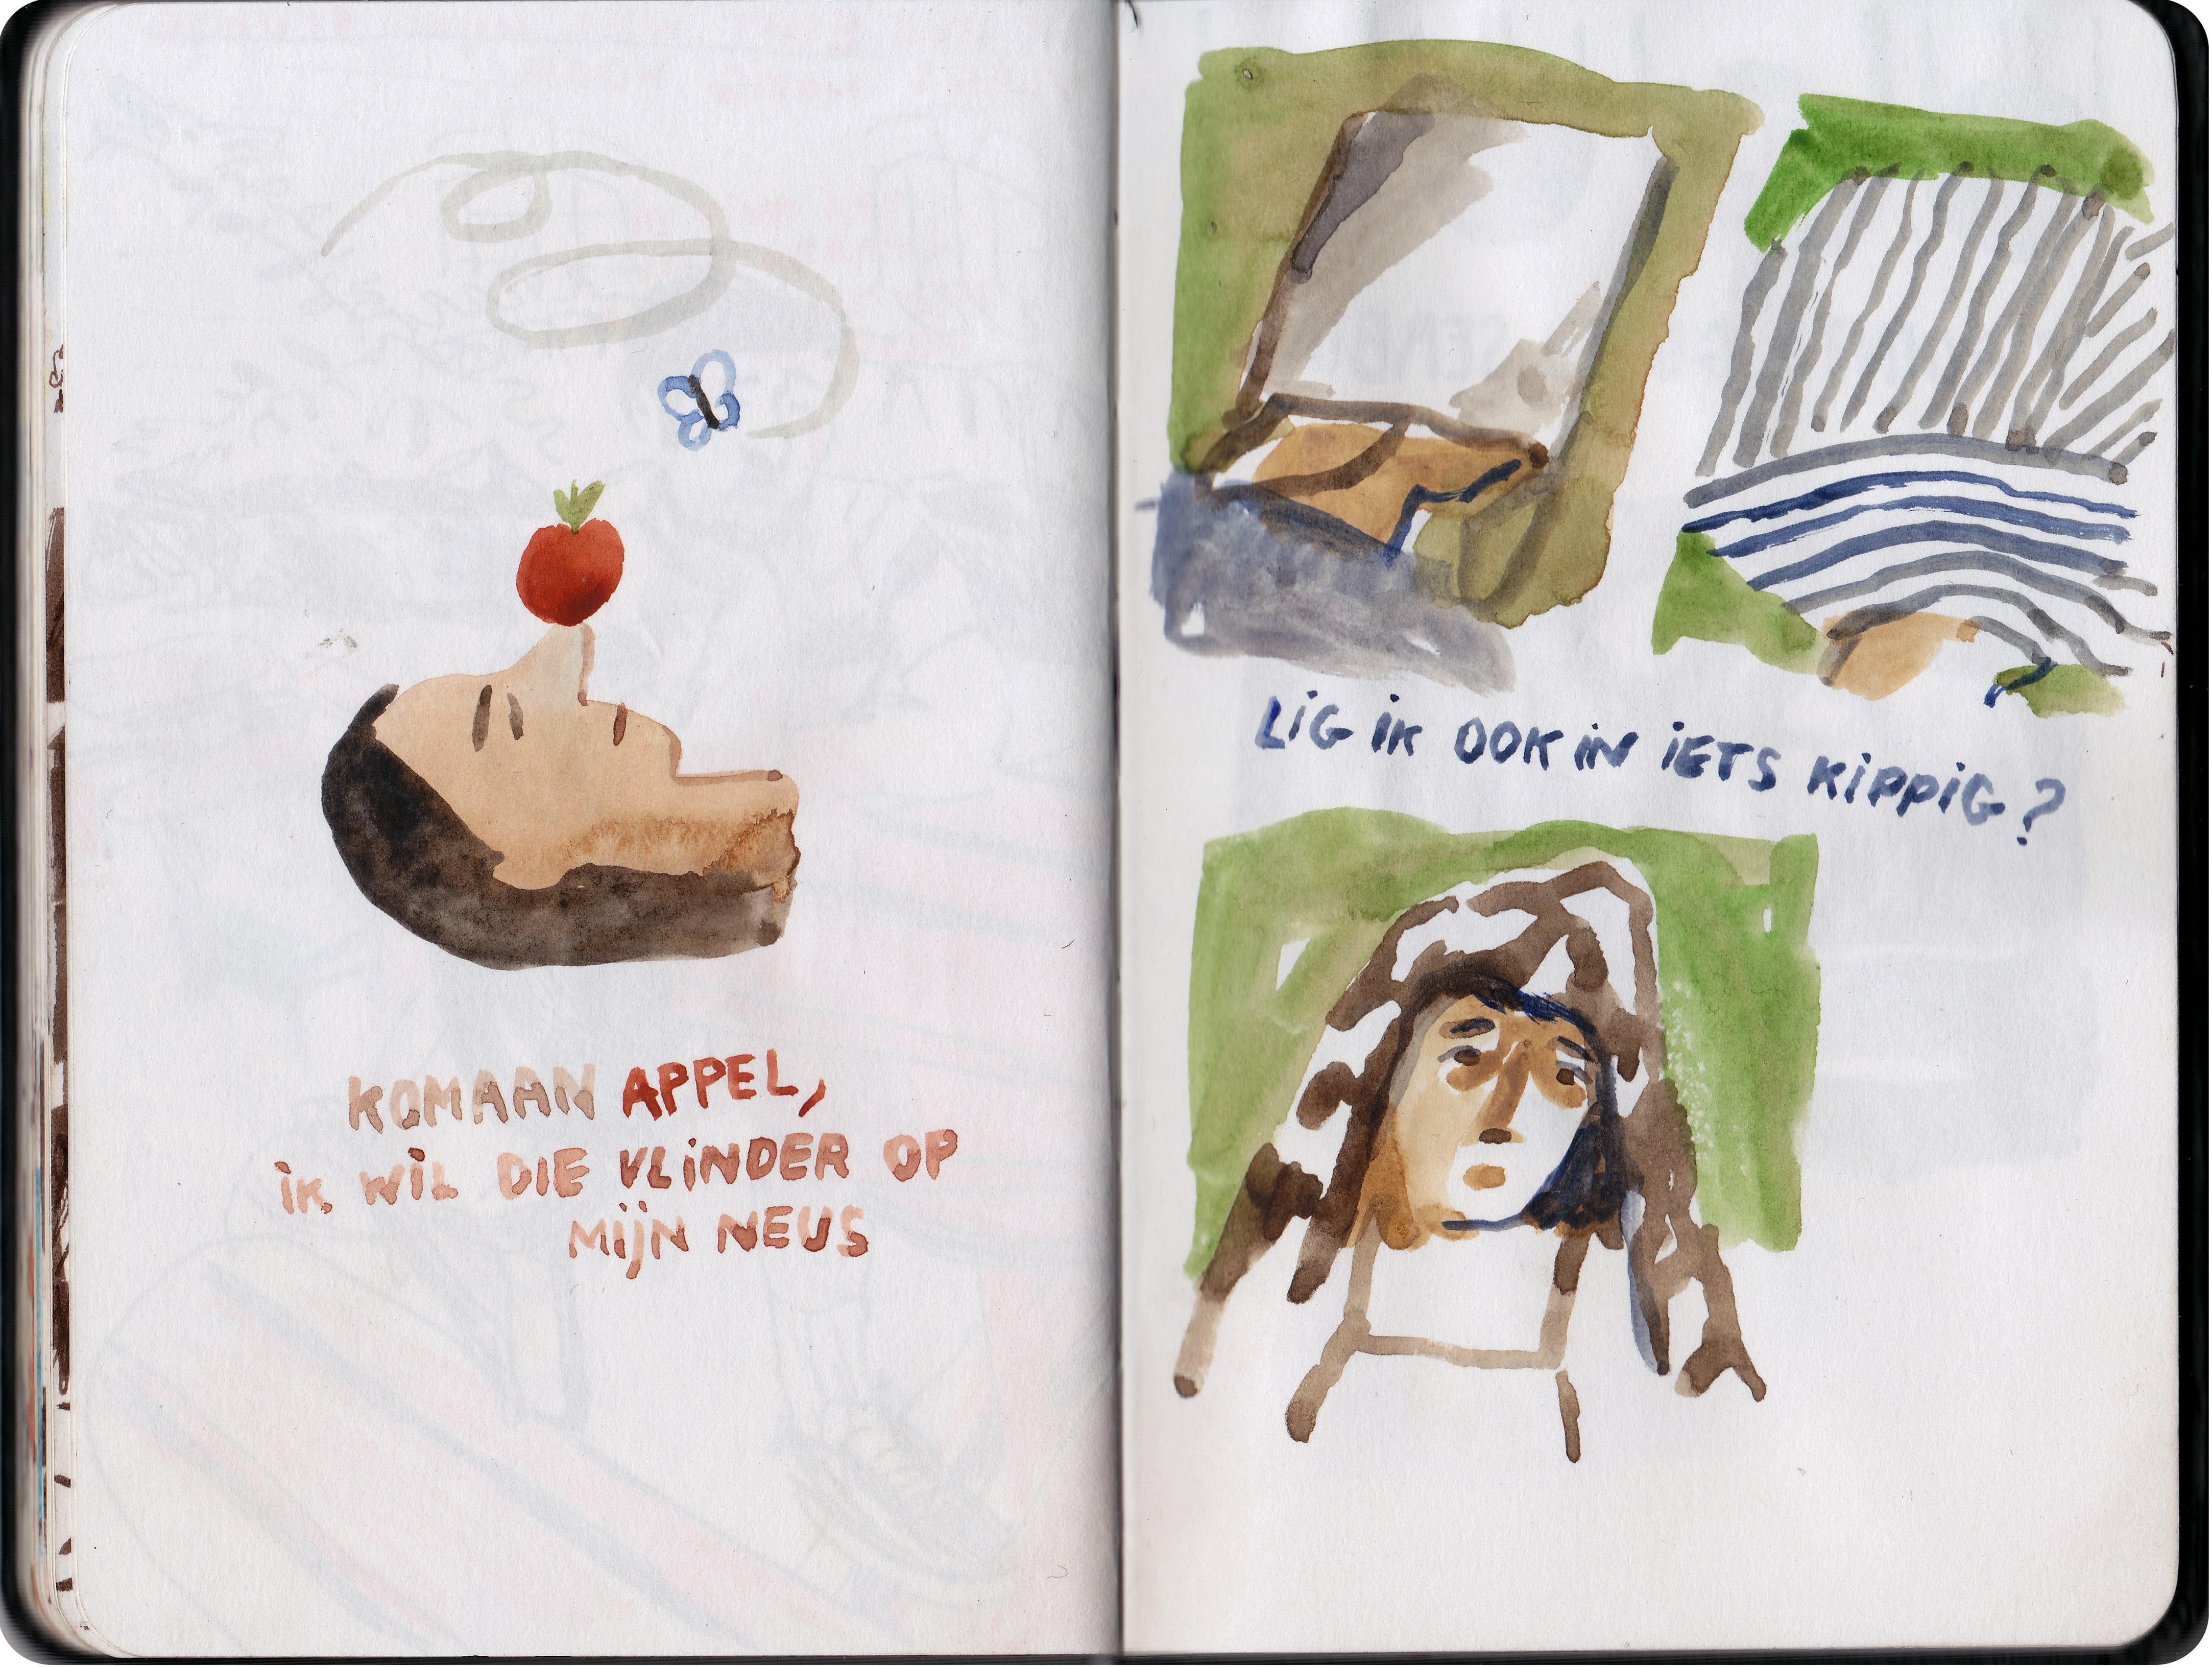 KOMAAN APPEL,
iK WiL DiE VLiNDER OP
MijN NEUS
LiG iK OOK iN iETS KippiG?